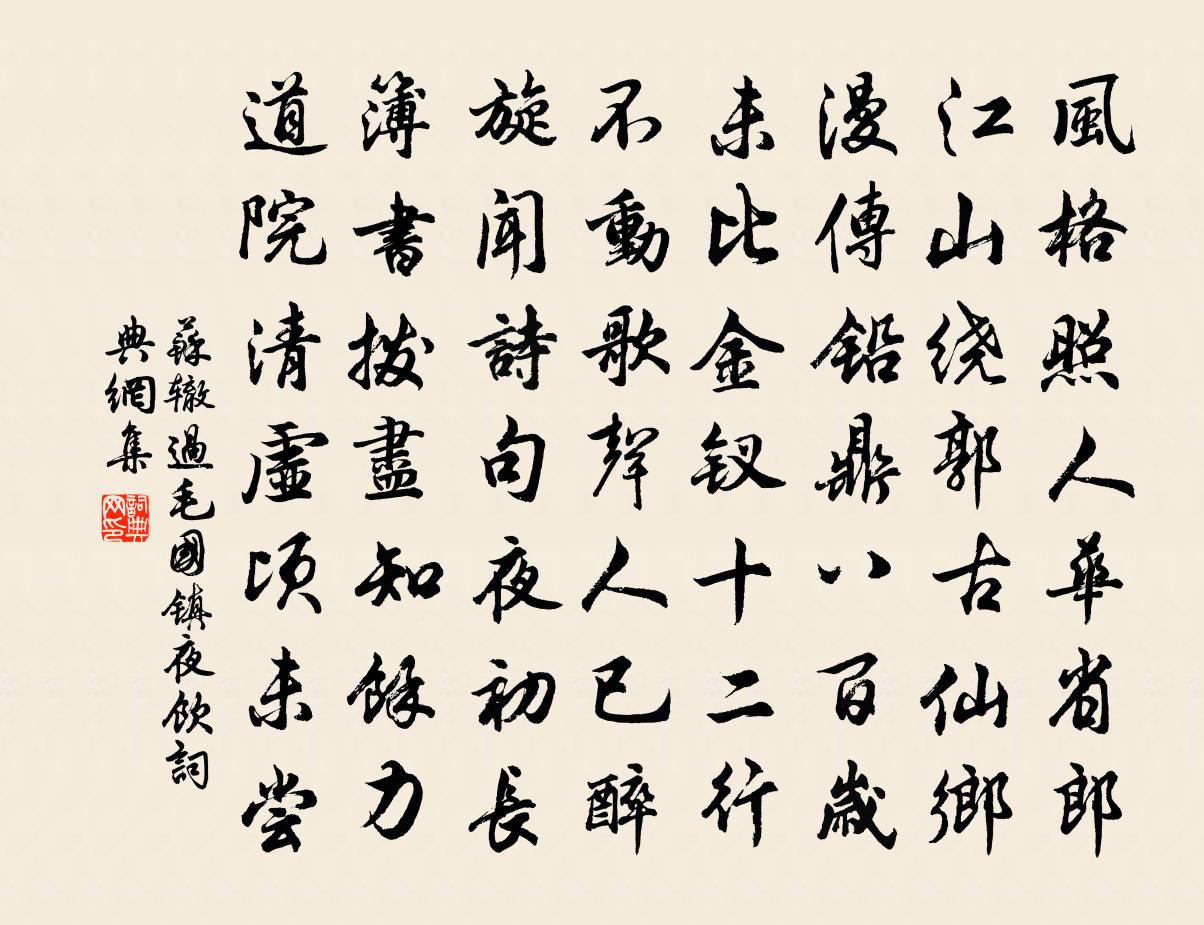 風格照人華省郎
江山绕郭古仙鄉
漫傳鉛鼎八百歲
未比金钗十二行
不動歌聲人已醉
旋聞詩句夜初長
簿書撥盡知餘力
道院清虛頃未嘗
蘇辙過毛國鎮夜飲詞
典網集
詞典
网印